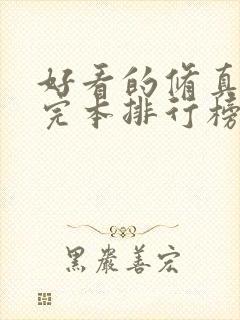 好看的脩真
完本排行榜
黑嚴善宏